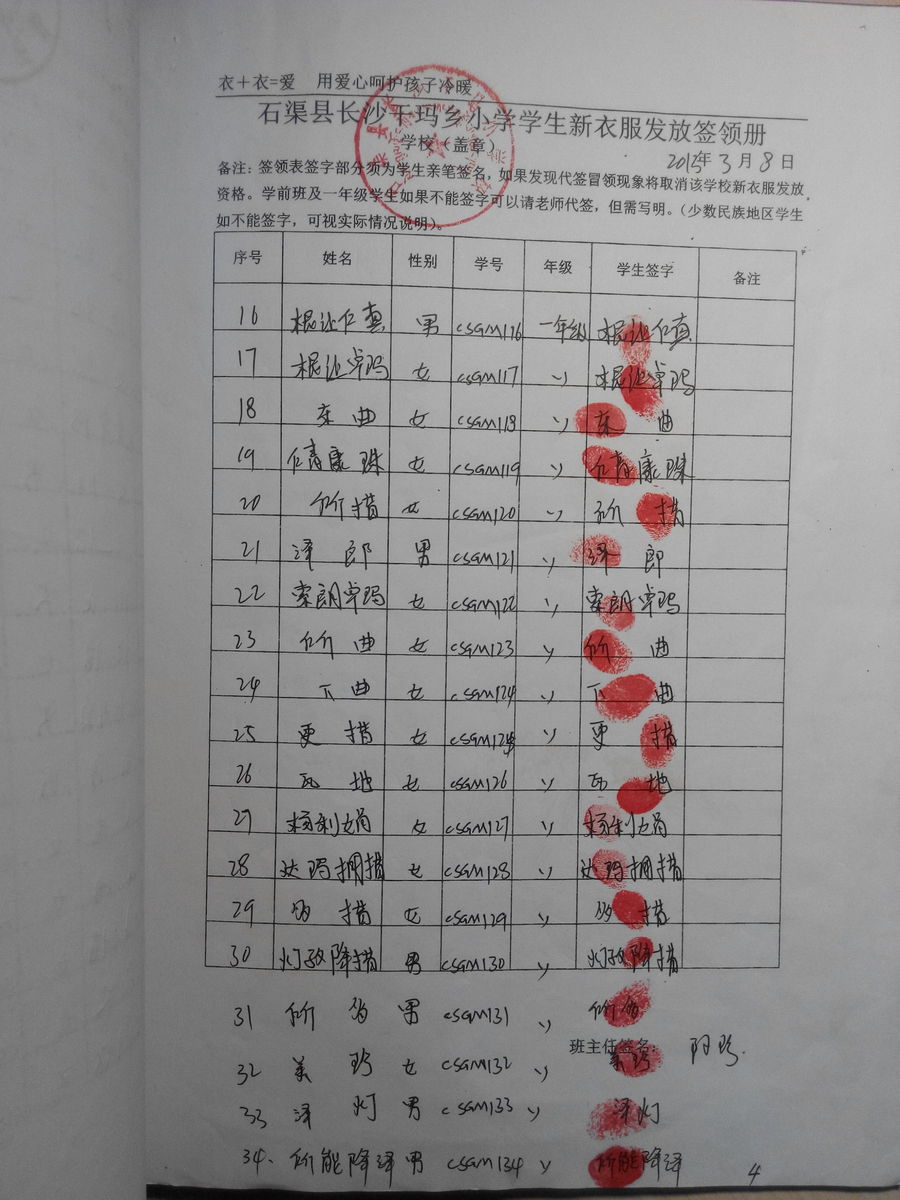 衣+衣=爱 用爱心呵护孩子冷暖
石渠县长沙干玛乡小学学生新衣服发放签领册
学校（盖章）
2015年3月8日
备注：签领表签字部分须为学生亲笔签名，如果发现代签冒领现象将取消该学校新衣服发放
资格。学前班及一年级学生如果不能签字可以请老师代签，但需写明。（少数民族地区学生
如不能签字，可视实际情况说明）。
序号 姓名 性别 学号 年级 学生签字 备注
16 根让仁真 男 csgm116 一年级 根让仁真
17 根让卓玛 女 csgm117 〃 根让卓玛
18 东曲 女 csgm118 〃 东曲
19 仁青康珠 女 csgm119 〃 仁青康珠
20 措 女 csgm120 〃 措
21 泽郎 男 csgm121 〃 泽郎
22 索朗卓玛 女 csgm122 〃 索朗卓玛
23 曲 女 csgm123 〃 曲
24 下曲 女 csgm124 〃 下曲
25 更措 女 csgm125 〃 更措
26 瓦地 女 csgm126 〃 瓦地
27 杨利娟 女 csgm127 〃 杨利娟
28 达玛拥措 女 csgm128 〃 达玛拥措
29 措 女 csgm129 〃 措
30 灯孜降措 男 csgm130 〃 灯孜降措
31 男 csgm131 〃
班主任签名：
32 美珍 女 csgm132 〃 美珍
33 泽灯 男 csgm133 〃 泽灯
34. 能降泽 男 csgm134 〃 能降泽
4